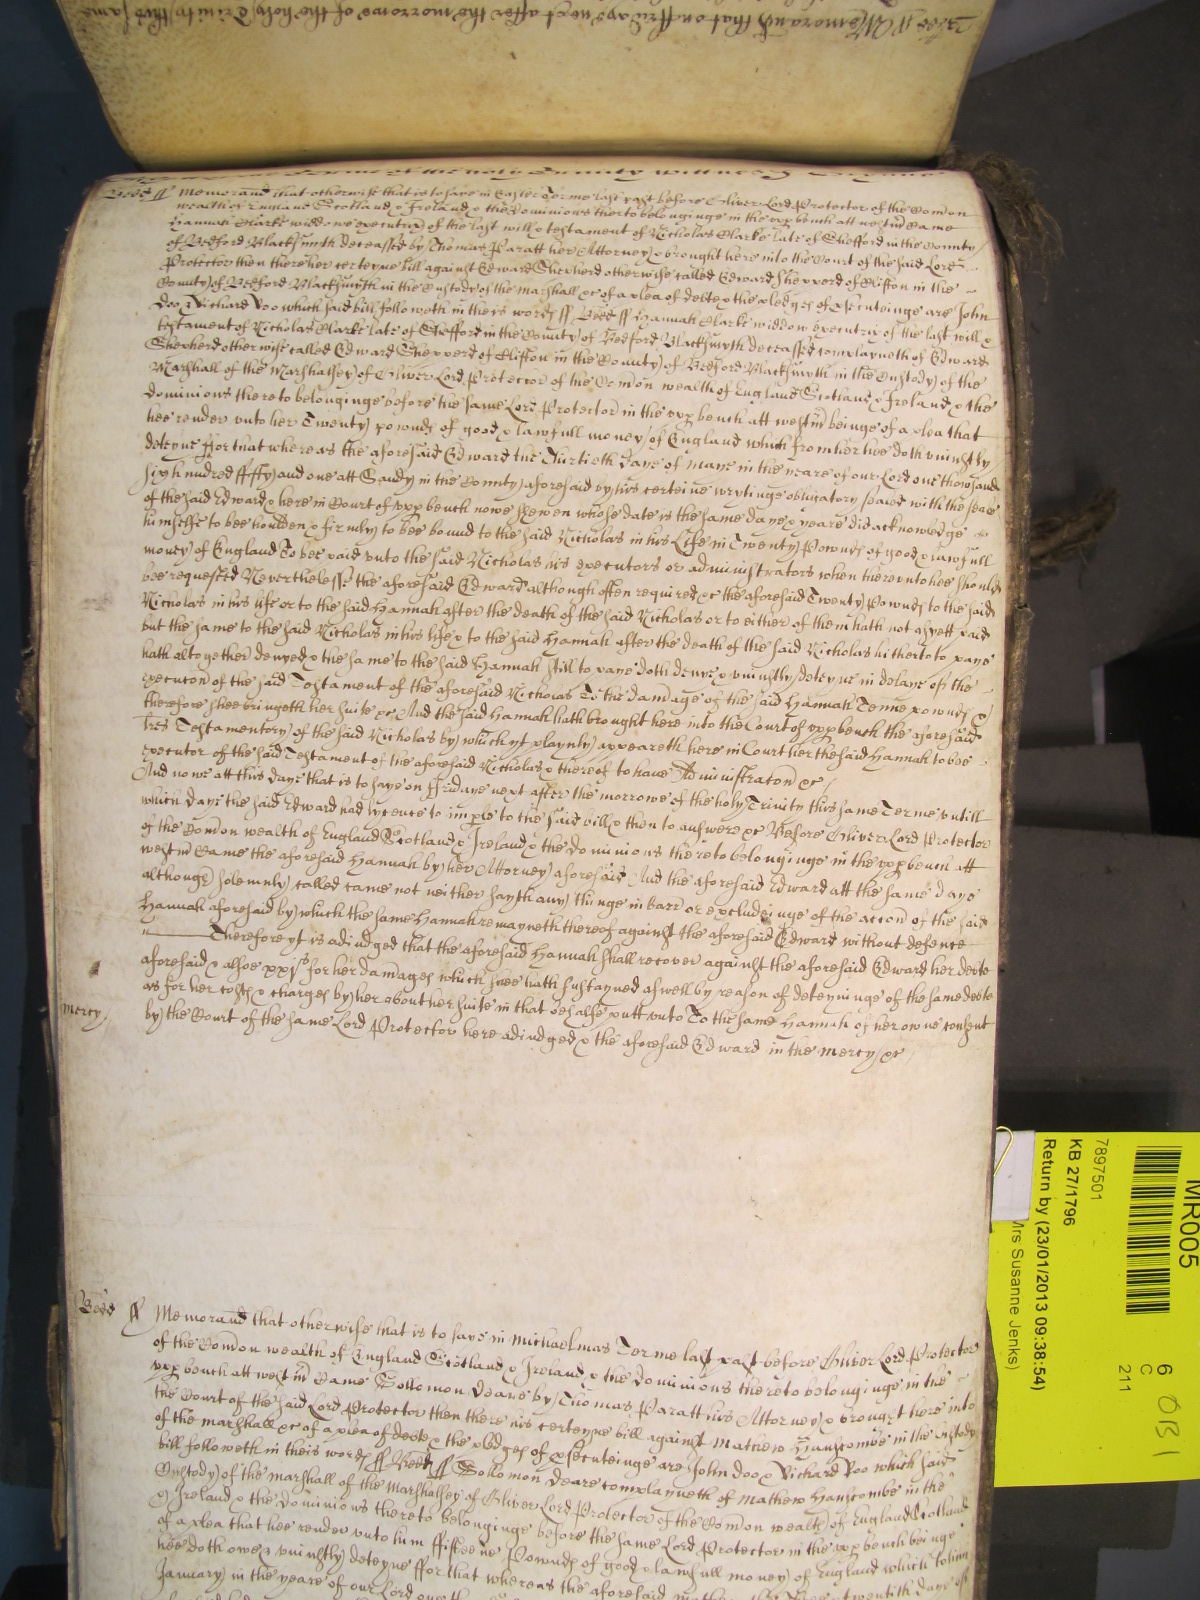 Bedd ss Memorand that otherwise that is to saye in Easter Terme last past before Oliver Lord Protector of the Comon
wealth of England Scotland & Ireland & the dominions thereto belonginge in the upp bench att westm Came
Hannah Clarke widdowe executrix of the last will & testament of Nicholas Clarke late of Shefford in the County
of Bedford Blacksmyth deceassed by Thomas Paratt her Attorney & brought here into the Court of the said Lord
Protector then there her certeyne bill against Edward Shepherd otherwise called Edward Shepperd of Clifton in the
County of Bedford Blacksmyth in the Custody of the marshall &c of a plea of debte & the pledges of prosecuteinge are John
Doo & Richard Roo which said bill followeth in theis words ss Bedd ss Hannah Clarke widdow executrix of the last will &
testament of Nicholas Clarke late of Shefford in the County of Bedford Blacksmyth deceassed complayneth of Edward
Shepherd otherwise called Edward Shepperd of Clifton in the County of Bedford Blacksmyth in the Custody of the
Marshall of the Marshalsey of Oliver Lord Protector of the Comon wealth of England Scotland & Ireland & the
dominions thereto belonginge before the same Lord Protector in the upp bench att westm beinge of a plea that
hee render unto her Twenty pownds of good & lawfull money of England which from her hee doth uniustly
deteyne ffor that whereas the aforesaid Edward the Thirtieth daye of Maye in the yeare of our Lord one thowsand
six hundred ffyfty and one att Sandy in the County aforesaid by his certeine wrytinge obligatory sealed with the seale
of the said Edward & here in Court of upp bench nowe shewen whose date is the same daye & yeare did acknowledge
himselfe to bee houlden & firmly to bee bound to the said Nicholas in his Life in Twenty Pownds of good & lawfull
money of England To bee paid unto the said Nicholas his executors or administrators when thereunto hee should
bee requested Neverthelesse the aforesaid Edward although often required &c the aforesaid Twenty Pownds to the said
Nicholas in his life or to the said Hannah after the death of the said Nicholas or to either of them hath not as yett paid
but the same to the said Nicholas in his life & to the said Hannah after the death of the said Nicholas hitherto to paye
hath altogether denyed & the same to the said Hannah still to paye doth denye & uniustly deteyne in delaye of the
execucon of the said Testament of the aforesaid Nicholas To the damage of the said Hannah Tenne pownds &
therefore shee bringeth her suite &c And the said Hannah hath brought here into the Court of upp bench the aforesaid
lres Testamentory of the said Nicholas by which yt playnly appeareth here in Court her the said Hannah to bee
executor of the said Testament of the aforesaid Nicholas & thereof to have Administracon &c
And nowe att this daye that is to saye on ffridaye next after the morrowe of the holy Trinity this same Terme untill
which daye the said Edward had lycence to imple to the said bill & then to answere &c Before Oliver Lord Protector
of the Comon wealth of England Scotland & Ireland & the dominions thereto belonginge in the upp bench att
westm Came the aforesaid Hannah by her Attorney aforesaid And the aforesaid Edward att the same daye
although solemnly called came not neither sayth any thinge in barr or excludeinge of the accon of the said
Hannah aforesaid by which the same Hannah remayneth thereof against the aforesaid Edward without defence
Therefore yt is adiudged that the aforesaid Hannah shall recover against the aforesaid Edward her debte
aforesaid & alsoe xxjs for her damages which shee hath sustayned aswell by reason of deteyninge of the same debte
as for her costs & charges by her about her suite in that behalfe putt unto To the same Hannah of her owne consent
mercy by the Court of the same Lord Protector here adiudged & the aforesaid Edward in the mercy &c
Bedd ss Memorand that otherwise that is to saye in Michaelmas Terme last past before Oliver Lord Protector
of the Comon wealth of England Scotland & Ireland & the dominions thereto belonginge in the
upp bench att westm Came Sollomon Deane by Thomas Paratt his Attorney & brought here into
the Court of the said Lord Protector then there his certeyne bill against Mathew Hanscombe in the Custody
of the marshall &c of a plea of debte & the pledges of prosecuteinge are John Doo & Richard Roo which said
bill followeth in theis words ss Bedd ss Sollomon Deane complayneth of Mathew Hanscombe in the
Custody of the marshall of the Marshalsey of Oliver Lord Protector of the Comon wealth of England Scotland
& Ireland & the dominions thereto belonginge before the same Lord Protector in the upp bench beinge
of a plea that hee render unto him ffifteene Pownds of good & lawfull money of England which to him
hee doth owe & uniustly deteyne ffor that whereas the aforesaid twentith daye of
January in the yeare of our Lord
MR005
6
C
211
7897501
KB 27/1796
Return by (23/01/2013 09:38:54)
Mrs Susanne Jenks)